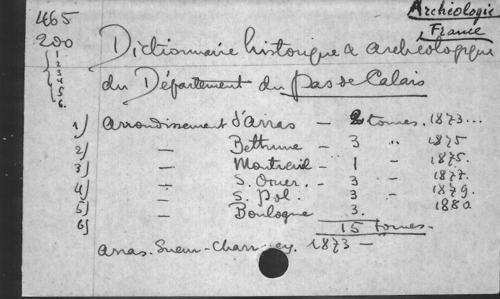 465
Archéologie
France
200
Dictionnaire historique & archéologique
1
2
3
4
5
6.
du Département du Pas de Calais
1) Arrondissement d'Arras – 2 tomes. 1873...
2) — Béthune – 3 " 1875
3) — Montreuil – 1 – 1875.
4) — S. Omer. – 3 – 1877.
5) — S. Pol. – 3 – 1879.
6) — Boulogne 3. 1880
15 tomes.
Arras. Sueur-Charruey. 1873 –